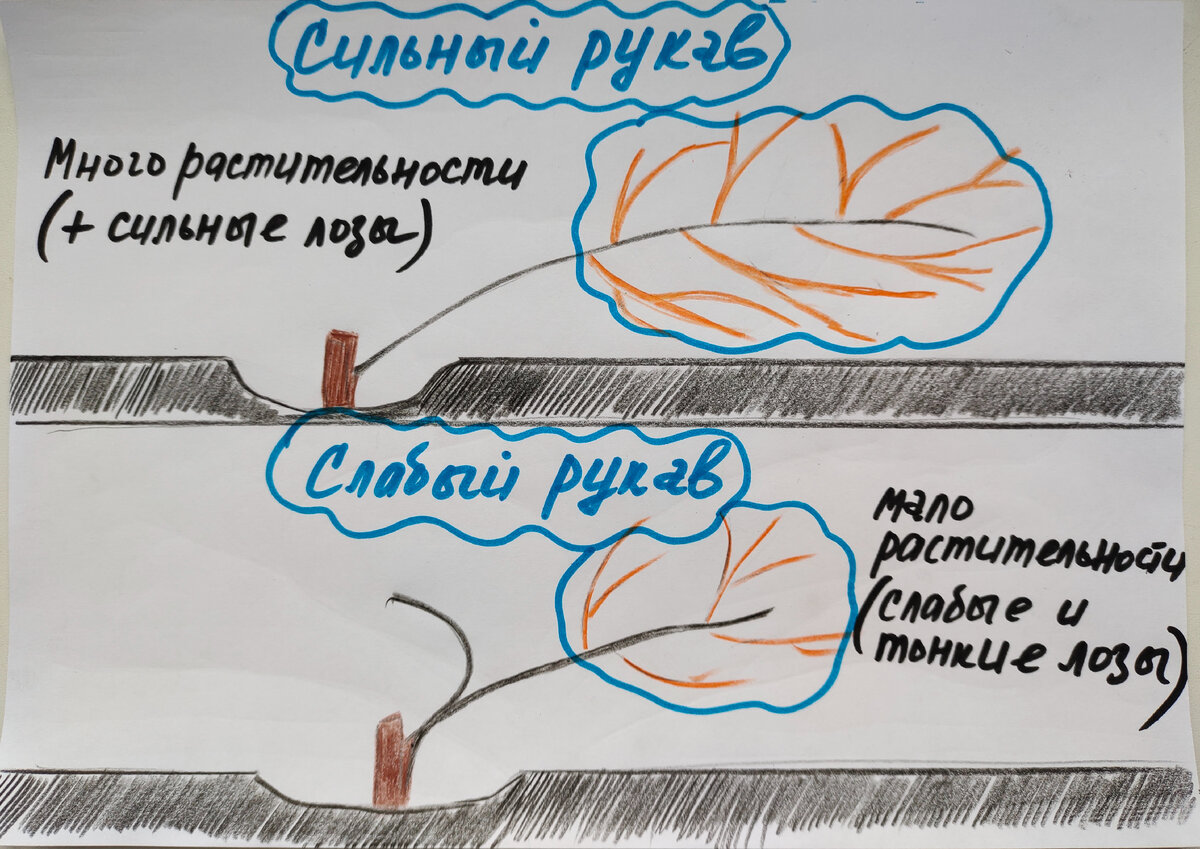 Сильный рукав
Много растительности
(+ сильные лозы)
Слабый рукав
мало
растительности
(слабые и
тонкие лозы)